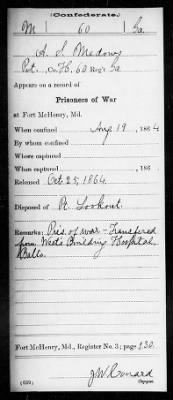 (Confederate.)
M 60 Ga.
A. S. Medows
Pvt., Co. H, 60 Reg't Ga
Appears on a record of
Prisoners of War
at Fort McHenry, Md.
When confined Aug 19, 1864
By whom confined
Where captured
When captured , 186 .
Released Oct 25, 1864.
Disposed of Pt Lookout
Remarks: Pris. of war - Transfered
from West's Building Hospital
Balto.
Fort McHenry, Md., Register No. 3; page 130
J W Conard
(639) Copyist.